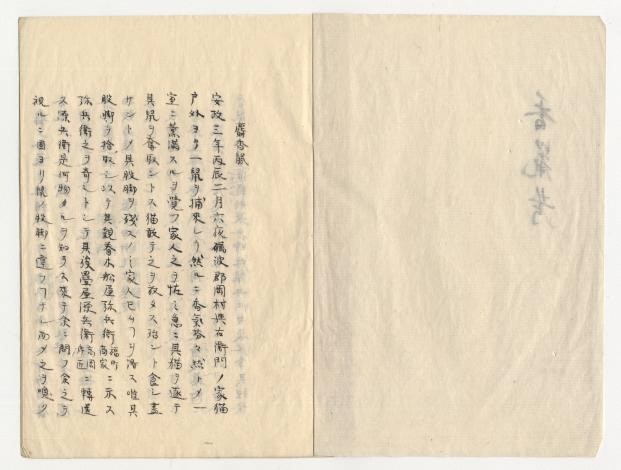 麝香鼠
安政三年丙辰二月六夜礪波郡岡村與右衛門ノ家猫
戸外ヨリ一鼠ヲ捕来レリ然ルニ香氣芬々然トメ一
室ニ薫満スルヲ覺フ家人之ヲ怪ミ急ニ其猫ヲ逐テ
其鼠ヲ奪取ントス猫敢テ之ヲ放タス殆ント食シ盡
サントノ其股脚ヲ残スノミ家人
股脚ヲ拾取シ以テ其親舂木船屋弥兵衛福町商家ニ示ス
弥兵衛之ヲ奇トシテ其後疊屋源兵衛高岡ニ轉送
ス源兵衛是何物タルヲ知ラス来テ余ニ問フ余之ヲ
視ルニ固ヨリ鼠ノ股脚ニ違ヲ而メ之ヲ嗅